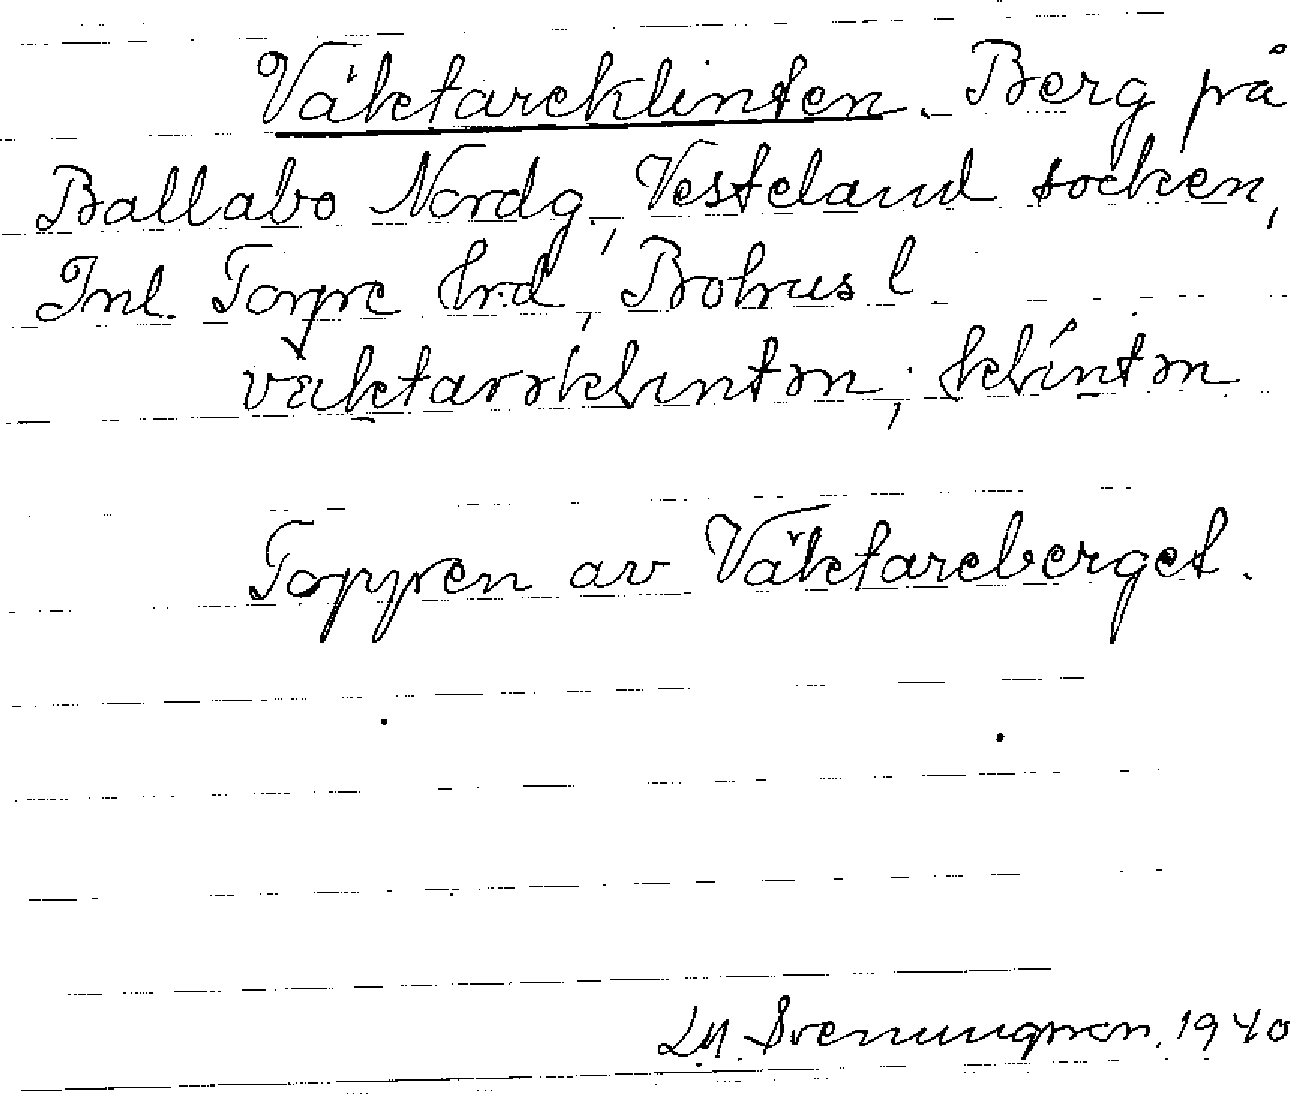 Väktareklinten. Berg på
Ballabo Nordg., Vesteland socken,
Inl. Torpe Hrd, Bohus l.
väktarəklintən, klintən
Toppen av Väktareberget.
Svenungsson. 1940